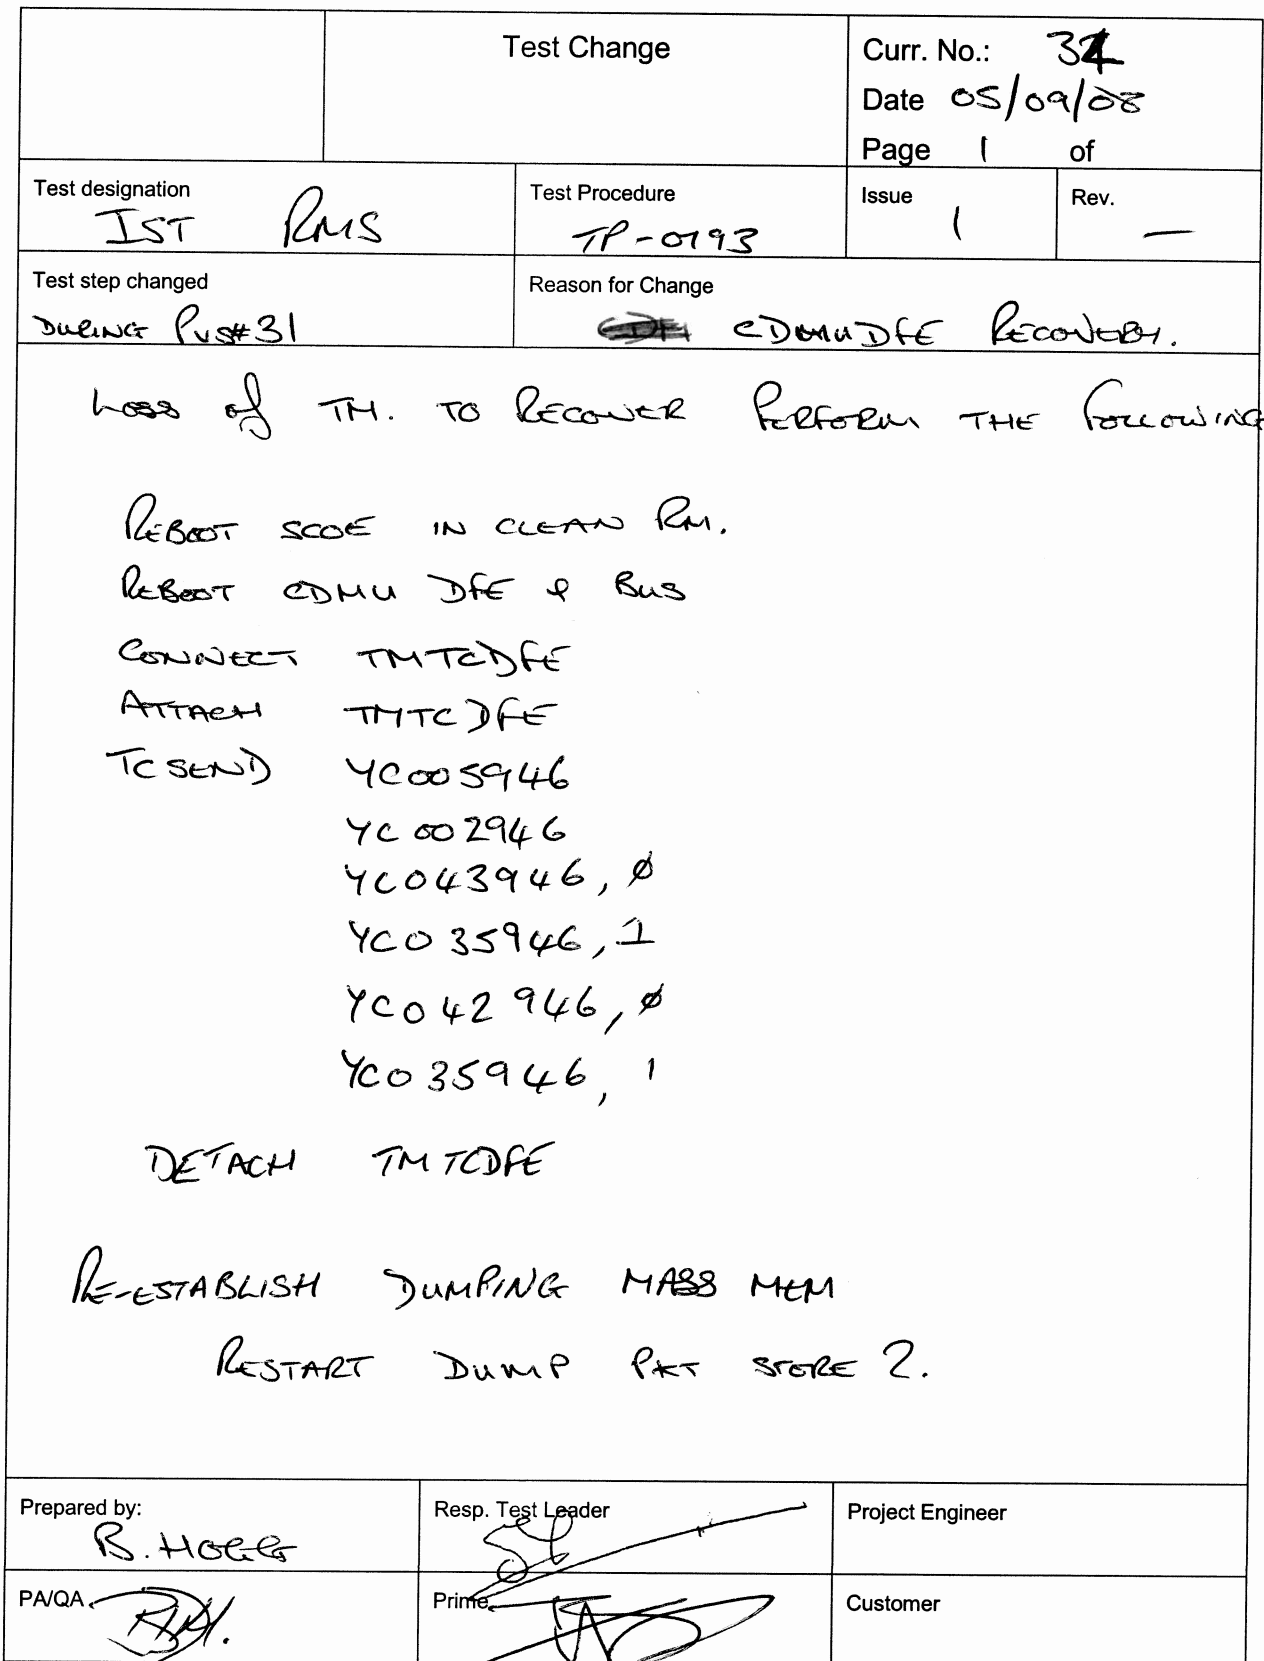 Test Change
Curr. No.: 34
Date 05/09/08
Page 1 of
Test designation
IST RMS
Test Procedure
TP-0193
Issue
1
Rev.
—
Test step changed
DURING PVS#31
Reason for Change
CDMU DFE RECOVERY.
LOSS of TM. TO RECOVER PERFORM THE FOLLOWING
REBOOT SCOE IN CLEAN RM.
REBOOT CDMU DFE & BUS
CONNECT TMTCDFE
ATTACH TMTCDFE
TCSEND YC005946
YC002946
YC043946, Ø
YC035946, 1
YC042946, Ø
YC035946, 1
DETACH TMTCDFE
RE-ESTABLISH DUMPING MASS MEM
RESTART DUMP PKT STORE 2.
Prepared by:
B. HOGG
Resp. Test Leader
Project Engineer
PA/QA
Prime
Customer